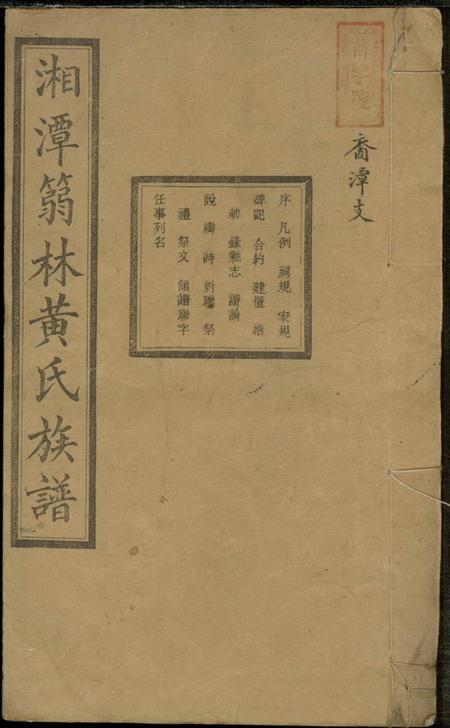 潭支
序 凡例 祠規 家規
碑記 合約 建置 誥
勅 錄縣志 譜論
說 詩 對聯 祭
禮 祭文 領譜聯字
任事列名
湘潭篛林黃氏族譜